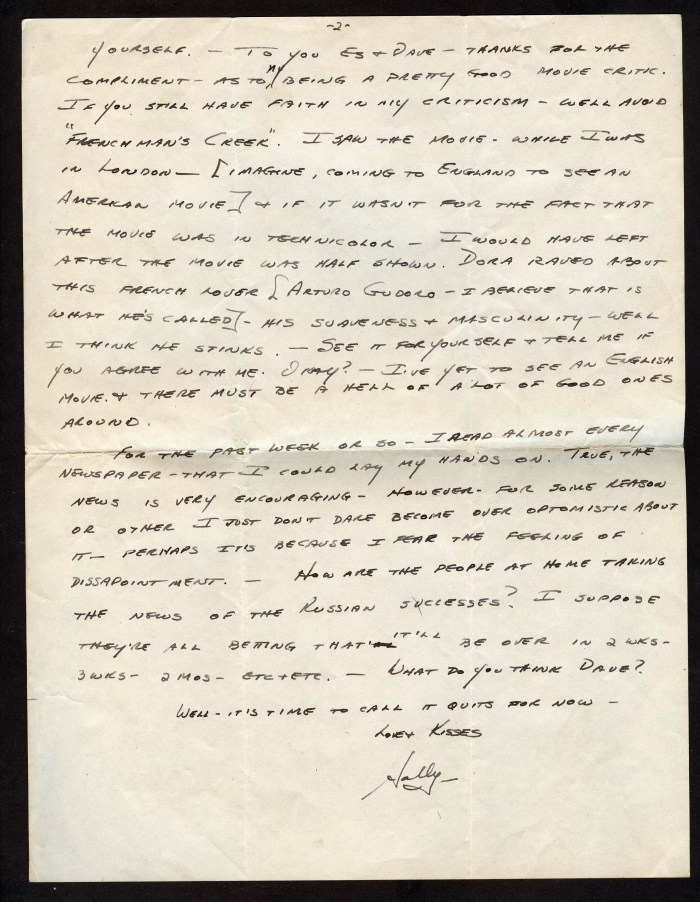 -2-
YOURSELF. - TO YOU ES & DAVE - THANKS FOR THE
COMPLIMENT - AS TO MY BEING A PRETTY GOOD MOVIE CRITIC.
IF YOU STILL HAVE FAITH IN MY CRITICISM - WELL AVOID
"FRENCHMAN'S CREEK". I SAW THE MOVIE - WHILE I WAS
IN LONDON - [IMAGINE, COMING TO ENGLAND TO SEE AN
AMERICAN MOVIE] & IF IT WASN'T FOR THE FACT THAT
THE MOVIE WAS IN TECHNICOLOR - I WOULD HAVE LEFT
AFTER THE MOVIE WAS HALF SHOWN. DORA RAVED ABOUT
THIS FRENCH LOVER [ARTURO GUDORO - I BELIEVE THAT IS
WHAT HE'S CALLED] - HIS SUAVENESS & MASCULINITY - WELL
I THINK HE STINKS. - SEE IT FOR YOURSELF & TELL ME IF
YOU AGREE WITH ME. OKAY? - I'VE YET TO SEE AN ENGLISH
MOVIE. & THERE MUST BE A HELL OF A LOT OF GOOD ONES
AROUND.
FOR THE PAST WEEK OR SO - I READ ALMOST EVERY
NEWSPAPER - THAT I COULD LAY MY HANDS ON. TRUE, THE
NEWS IS VERY ENCOURAGING - HOWEVER - FOR SOME REASON
OR OTHER I JUST DON'T DARE BECOME OVER OPTOMISTIC ABOUT
IT - PERHAPS ITS BECAUSE I FEAR THE FEELING OF
DISSAPOINTMENT. - HOW ARE THE PEOPLE AT HOME TAKING
THE NEWS OF THE RUSSIAN SUCCESSES? I SUPPOSE
THEY'RE ALL BETTING THAT IT'LL BE OVER IN 2 WKS-
3 WKS - 2 MOS - ETC & ETC. - WHAT DO YOU THINK DAVE?
WELL - IT'S TIME TO CALL IT QUITS FOR NOW -
LOVE & KISSES
Sally -